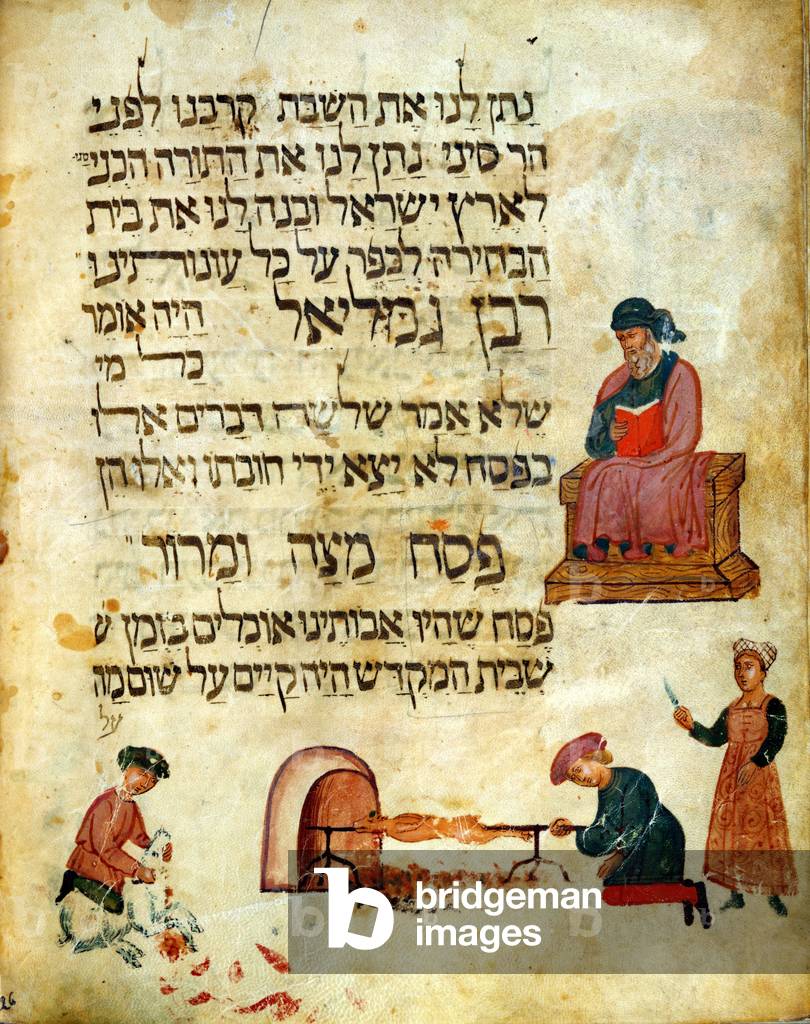 נתן לנו את השבת קרבנו לפני
הר סיני נתן לנו את התורה הכני
לארץ ישראל ובנה לנו את בית
הבחירה לכפר על כל עונותינו
רבן גמליאל היה אומר
כל מי
שלא אמר שלשה דברים אלו
בפסח לא יצא ידי חובתו ואלו הן
פסח מצה ומרור
פסח שהיו אבותינו אוכלים בזמן ש
שבית המקדש היה קיים על שום מה
על
26
b bridgeman
images